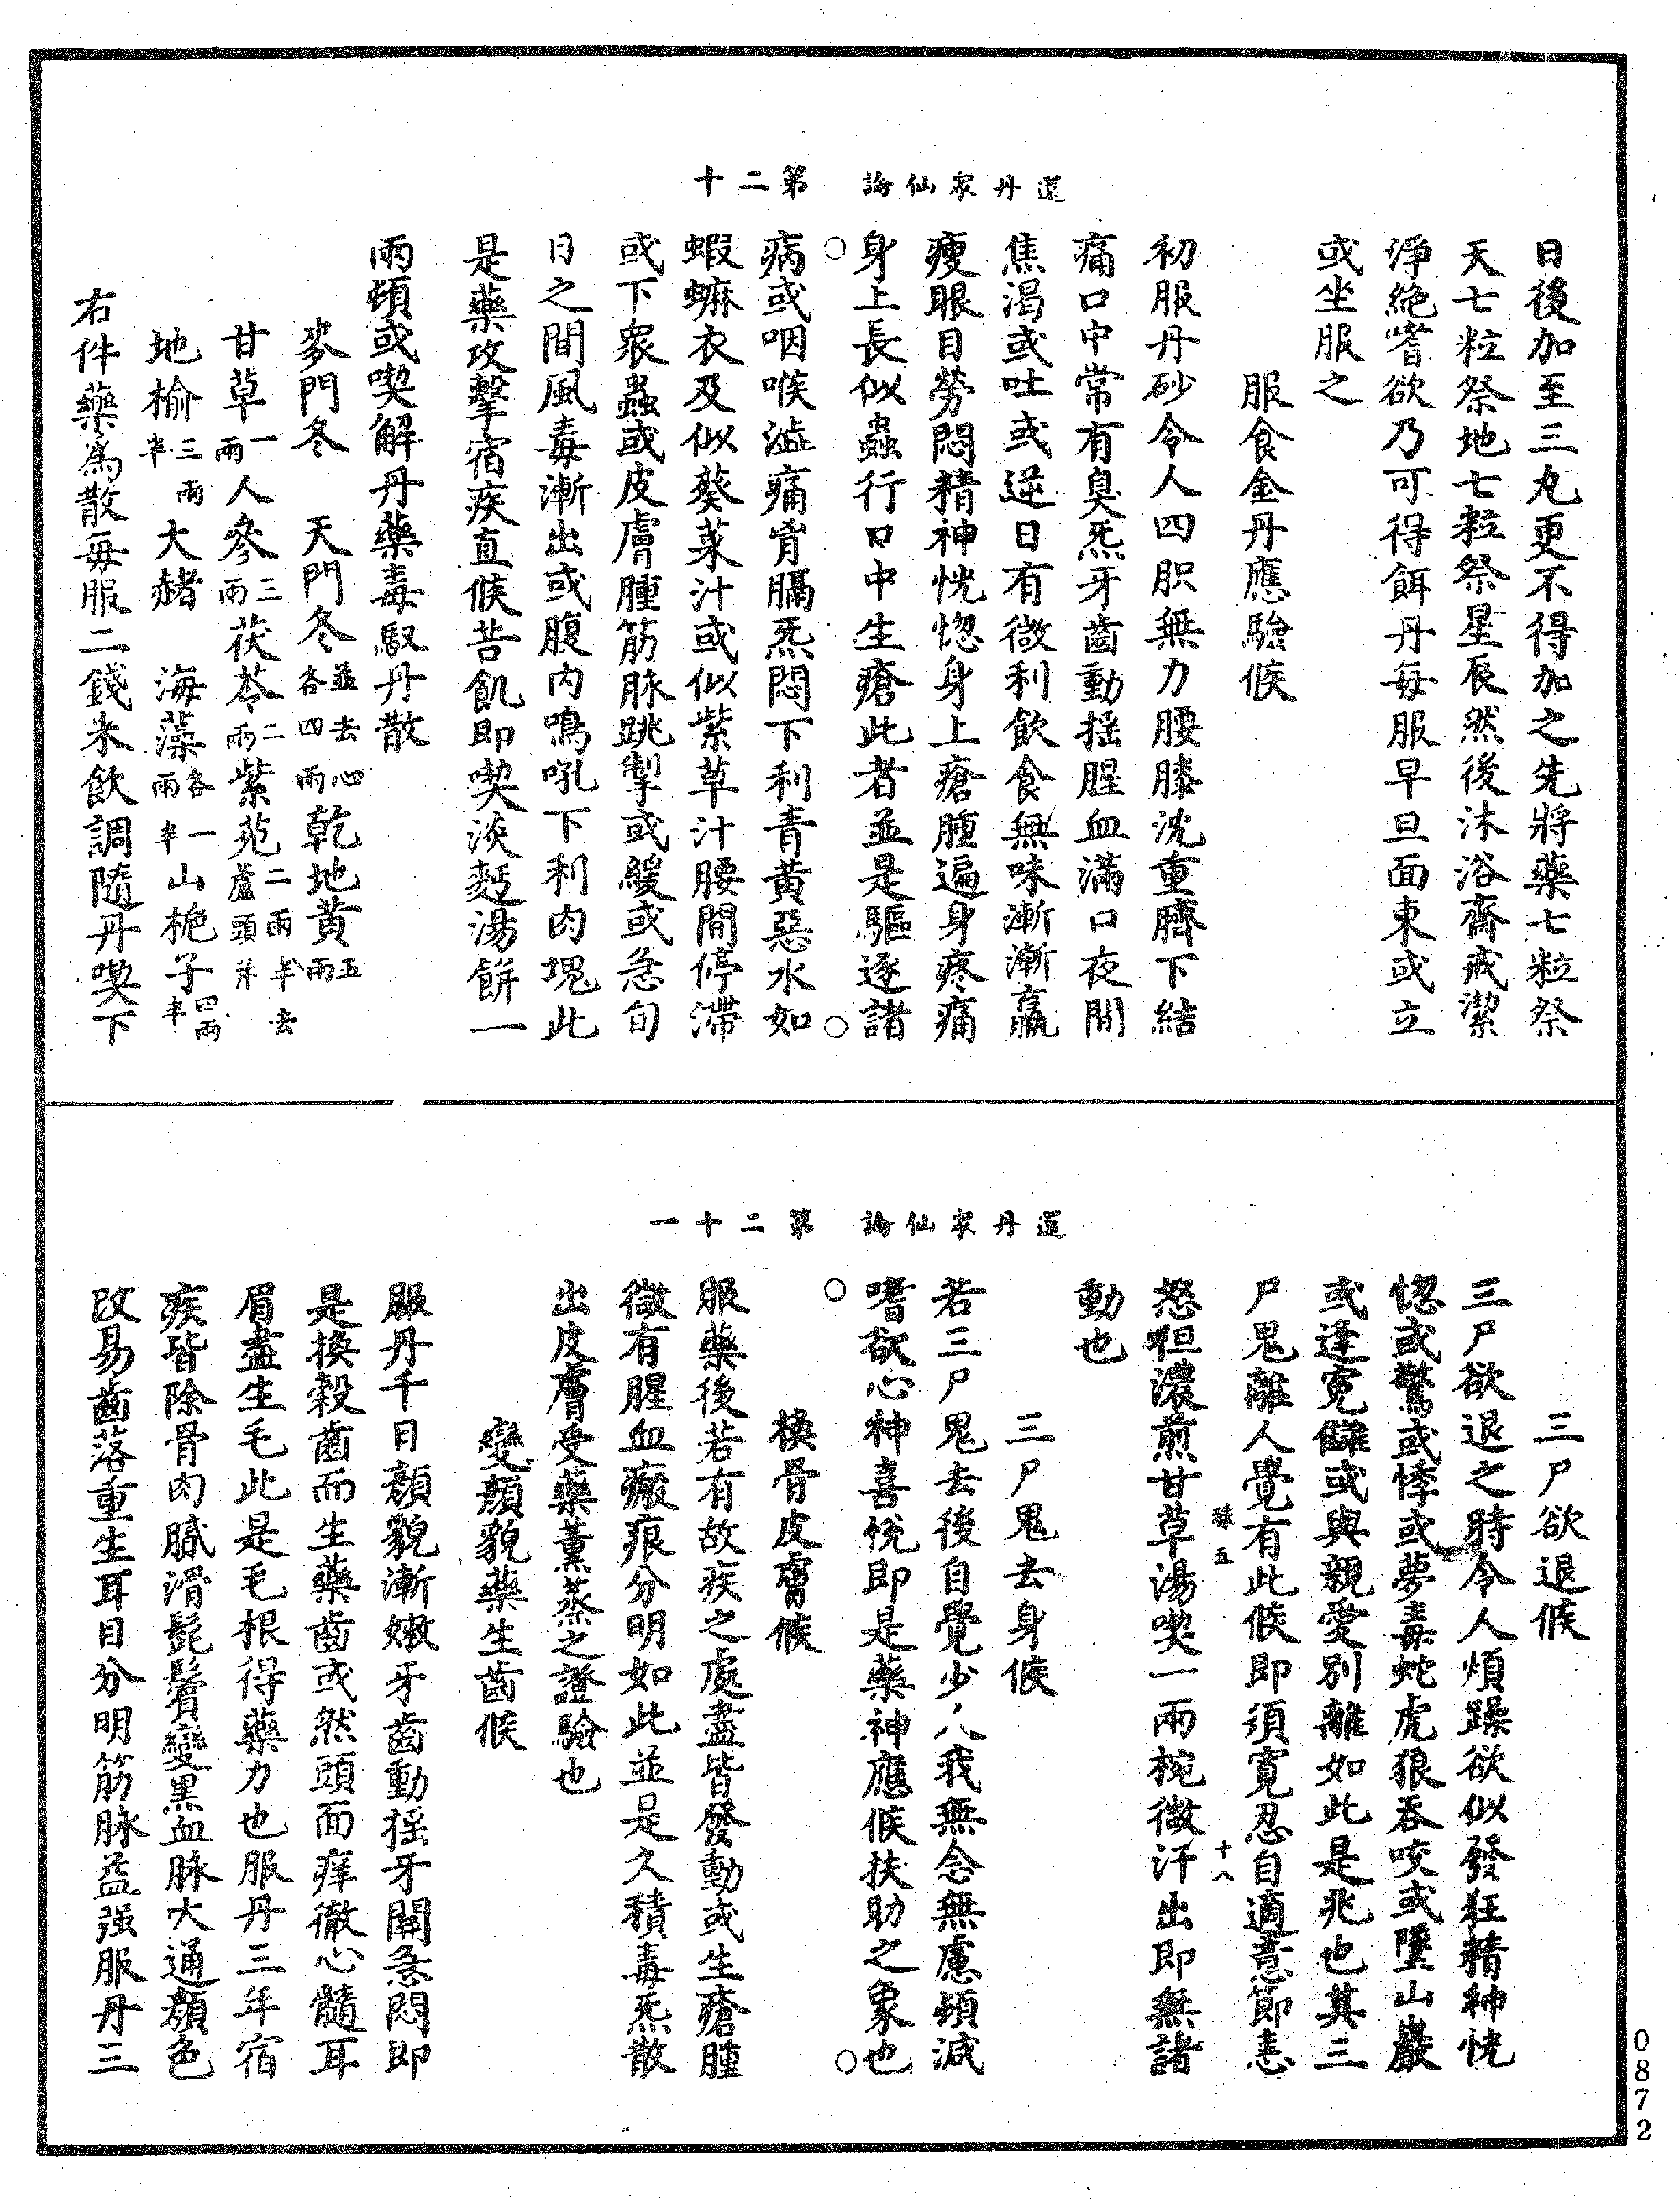 還丹衆仙論　第二十
日後加至三丸更不得加之先將藥七粒祭
天七粒祭地七粒祭星辰然後沐浴齋戒潔
淨絶嗜欲乃可得餌丹每服早旦面東或立
或坐服之
服食金丹應驗候
初服丹砂令人四肢無力腰膝沈重臍下結
痛口中常有臭炁牙齒動揺腥血滿口夜間
焦渴或吐或逆日有微利飲食無味漸漸羸
瘦眼目勞悶精神恍惚身上瘡腫遍身疼痛
身上長似蟲行口中生瘡此者並是驅逐諸
病或咽喉澁痛胷膈炁悶下利青黃惡水如
蝦蟵衣及似葵菜汁或似紫草汁腰間停滯
或下衆蟲或皮膚腫筋脉跳掣或緩或急旬
日之間風毒漸出或腹内鳴吼下利肉塊此
是藥攻擊宿疾直候苦飢即喫淡麫湯餅一
兩頓或喫解丹藥毒馭丹散
麥門冬　天門冬並去心各四兩乾地黄五兩
甘草一兩人參三兩茯苓二兩紫菀二兩半去蘆頭并
地榆三兩半大赭　海藻各一兩半山梔子四兩半
右件藥為散每服二錢米飲調隨丹喫下
還丹衆仙論　第二十一
三尸欲退候
三尸欲退之時令人煩躁欲似發狂精神恍
惚或驚或悸或夢毒蛇虎狼吞咬或墜山巖
或逢寃讎或與親愛别離如此是兆也其三
尸鬼離人覺有此候即須寛忍自適意節恚
怒但濃煎甘草湯喫一兩椀微汗出即無諸
動也
三尸鬼去身候
若三尸鬼去後自覺少人我無念無慮頓減
嗜欲心神喜悦即是藥神應候扶助之象也
換骨皮膚候
服藥後若有故疾之處盡皆發動或生瘡腫
微有腥血瘢痕分明如此並是久積毒炁散
出皮膚受藥薰蒸之證驗也
變顔貌藥生齒候
服丹千日顔貌漸嫩牙齒動揺牙關急悶即
是換榖齒而生藥齒或然頭面痒徹心髓耳
眉盡生毛此是毛根得藥力也服丹三年宿
疾皆除骨肉膩滑髭鬢變黒血脉大通顔色
改易齒落重生耳目分明筋脉益强服丹三
咏五　十八
0872